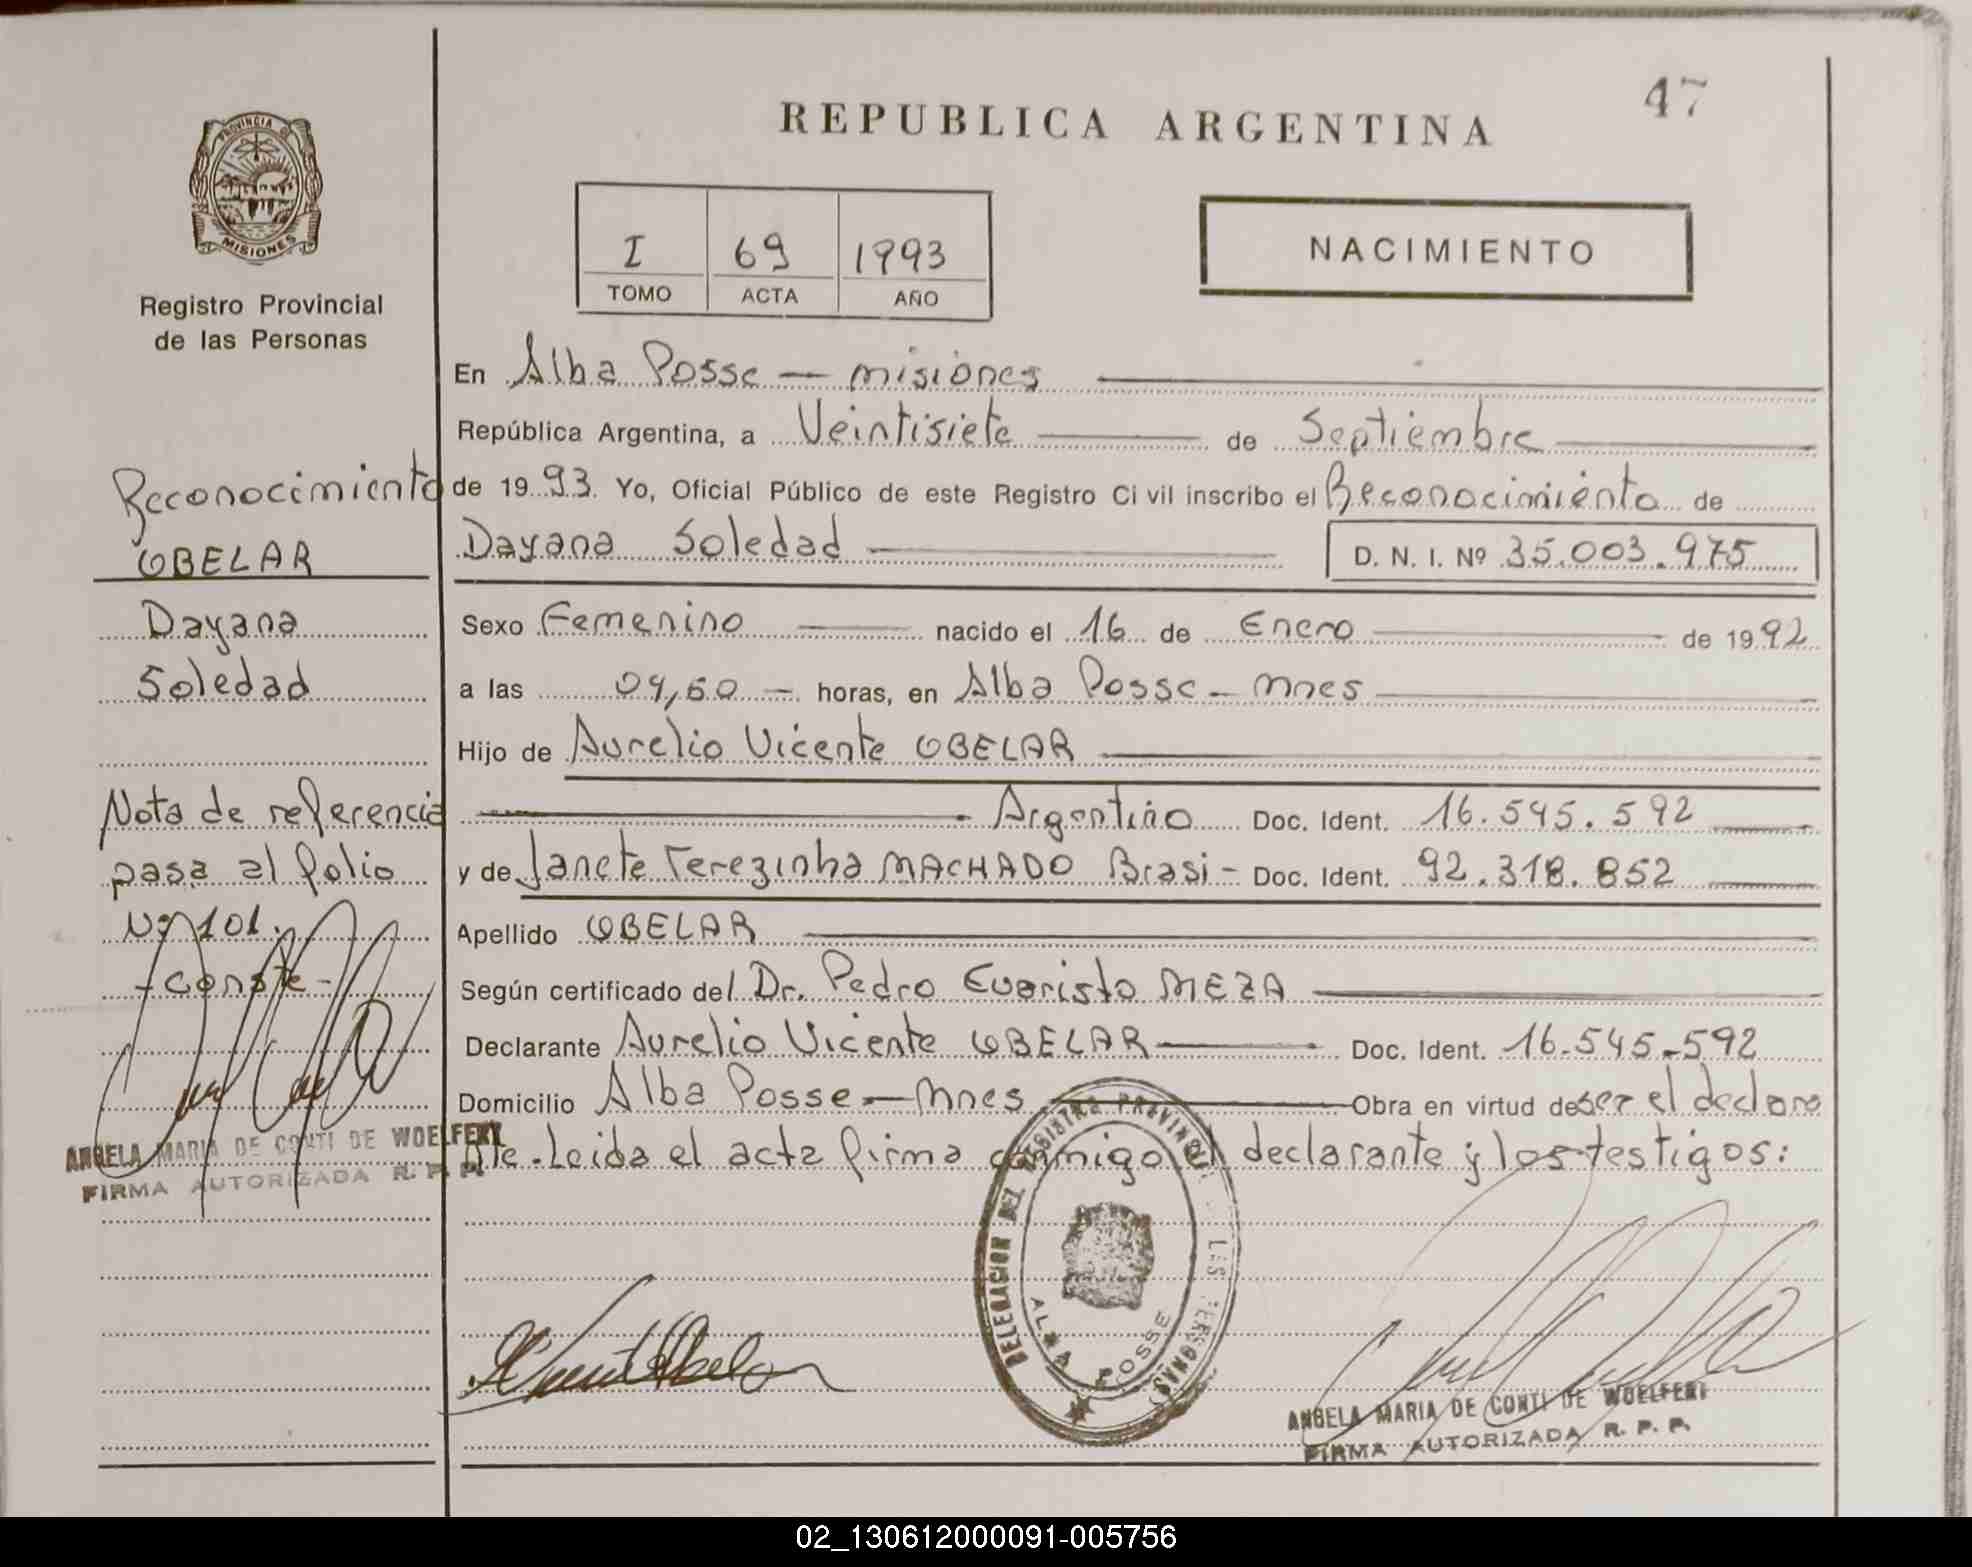 47
REPUBLICA ARGENTINA
PROVINCIA D
MISIONES
Registro Provincial
de las Personas
I 69 1993
TOMO ACTA AÑO
NACIMIENTO
En Alba Posse — Misiones
República Argentina, a Veintisiete de Septiembre
de 1993. Yo, Oficial Público de este Registro Civil inscribo el Reconocimiento de
Dayana Soledad D. N. I. Nº 35.003.975
Sexo Femenino nacido el 16 de Enero de 1992
a las horas, en Alba Posse - Mnes
Hijo de Aurelio Vicente OBELAR
Argentino Doc. Ident. 16.545.592
y de Janete Terezinha MACHADO Brasi- Doc. Ident. 92.318.852
Apellido OBELAR
Según certificado del Dr. Pedro Evaristo MEZA
Declarante Aurelio Vicente OBELAR Doc. Ident. 16.545.592
Domicilio Alba Posse — Mnes Obra en virtud de ser el declara
nte. Leida el acta firma conmigo el declarante y los testigos:
Reconocimiento
OBELAR
Dayana
Soledad
Nota de referencia
pasa al folio
Nº 101.
-conste-
ANGELA MARIA DE CONTI DE WOELFERT
FIRMA AUTORIZADA R. P. P.
DELEGACION DEL REGISTRO PROVINCIAL DE LAS PERSONAS
ALBA POSSE
ANGELA MARIA DE CONTI DE WOELFERT
FIRMA AUTORIZADA R. P. P.
02_130612000091-005756